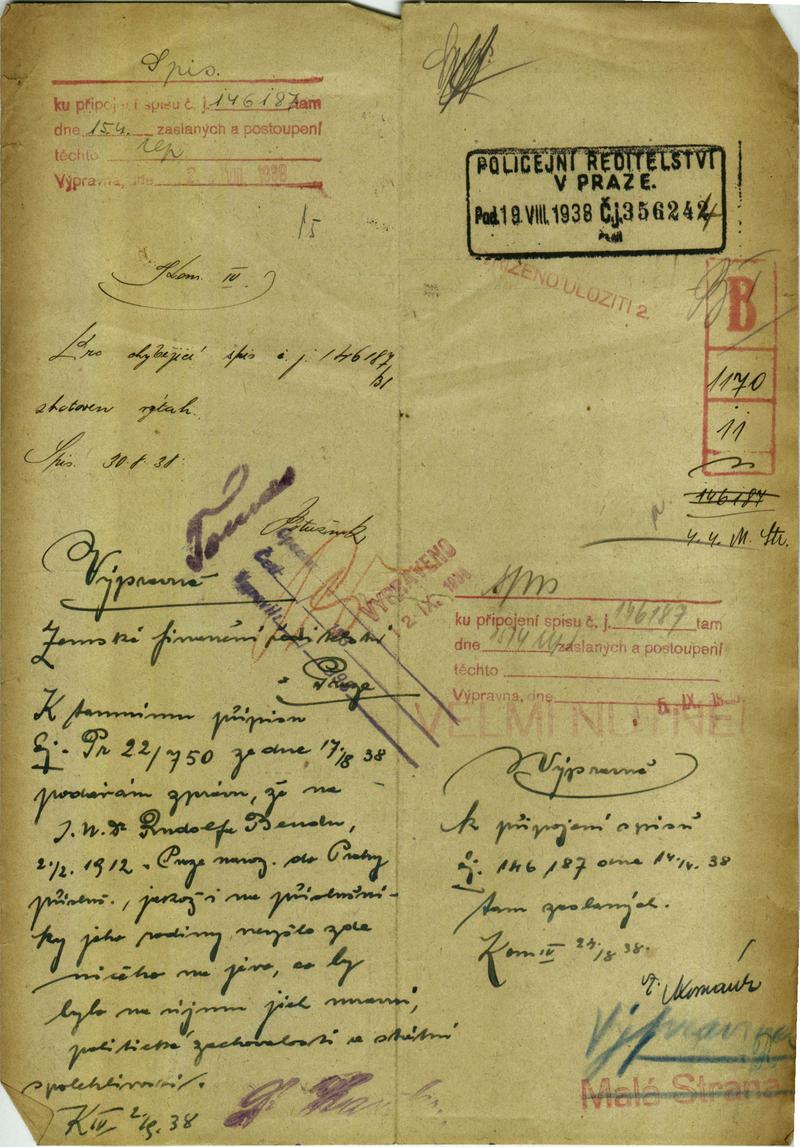 Spis.
ku připojení spisu č. j. 146187 tam
dne 15.4. zaslaných a postoupení
těchto
Výpravna, dne VIII. 1938
15
Kom. IV.
Pro chybějící spis č. j. 146187
/B1
zhotoven
Spis. 30.8.38
Výpravně
VYPRAVENO
2. IX. 1938
Zemské finanční ředitelství
v Praze
K tamnímu přípisu
Čj. Pr 22/750 ze dne 17./8 38
podávám zprávu, že na
J.U.Dr Rudolfa Bendu,
2./2. 1912 v Praze naroz. do Prahy
přísluš., jakož i na příslušní-
ky jeho rodiny nevyšlo zde
ničeho na jevo, co by
bylo na újmu jich mravní,
politické zachovalosti a státní
spolehlivosti.
K IV 2./9. 38
POLICEJNÍ ŘEDITELSTVÍ
V PRAZE.
Pod. 19. VIII. 1938 Č.j. 356244
ULOŽITI 2
B
1170
11
146187
M. Str.
spis
ku připojení spisu č. j. 146187 tam
dne zaslaných a postoupení
těchto
Výpravna, dne 5. IX.
VELMI NUTNÉ!
Výpravně
k připojení spisů
čj. 146 187 dne 14./4. 38
tam zaslaných.
Kom IV 24./8 38.
Výpravna
Malá Strana